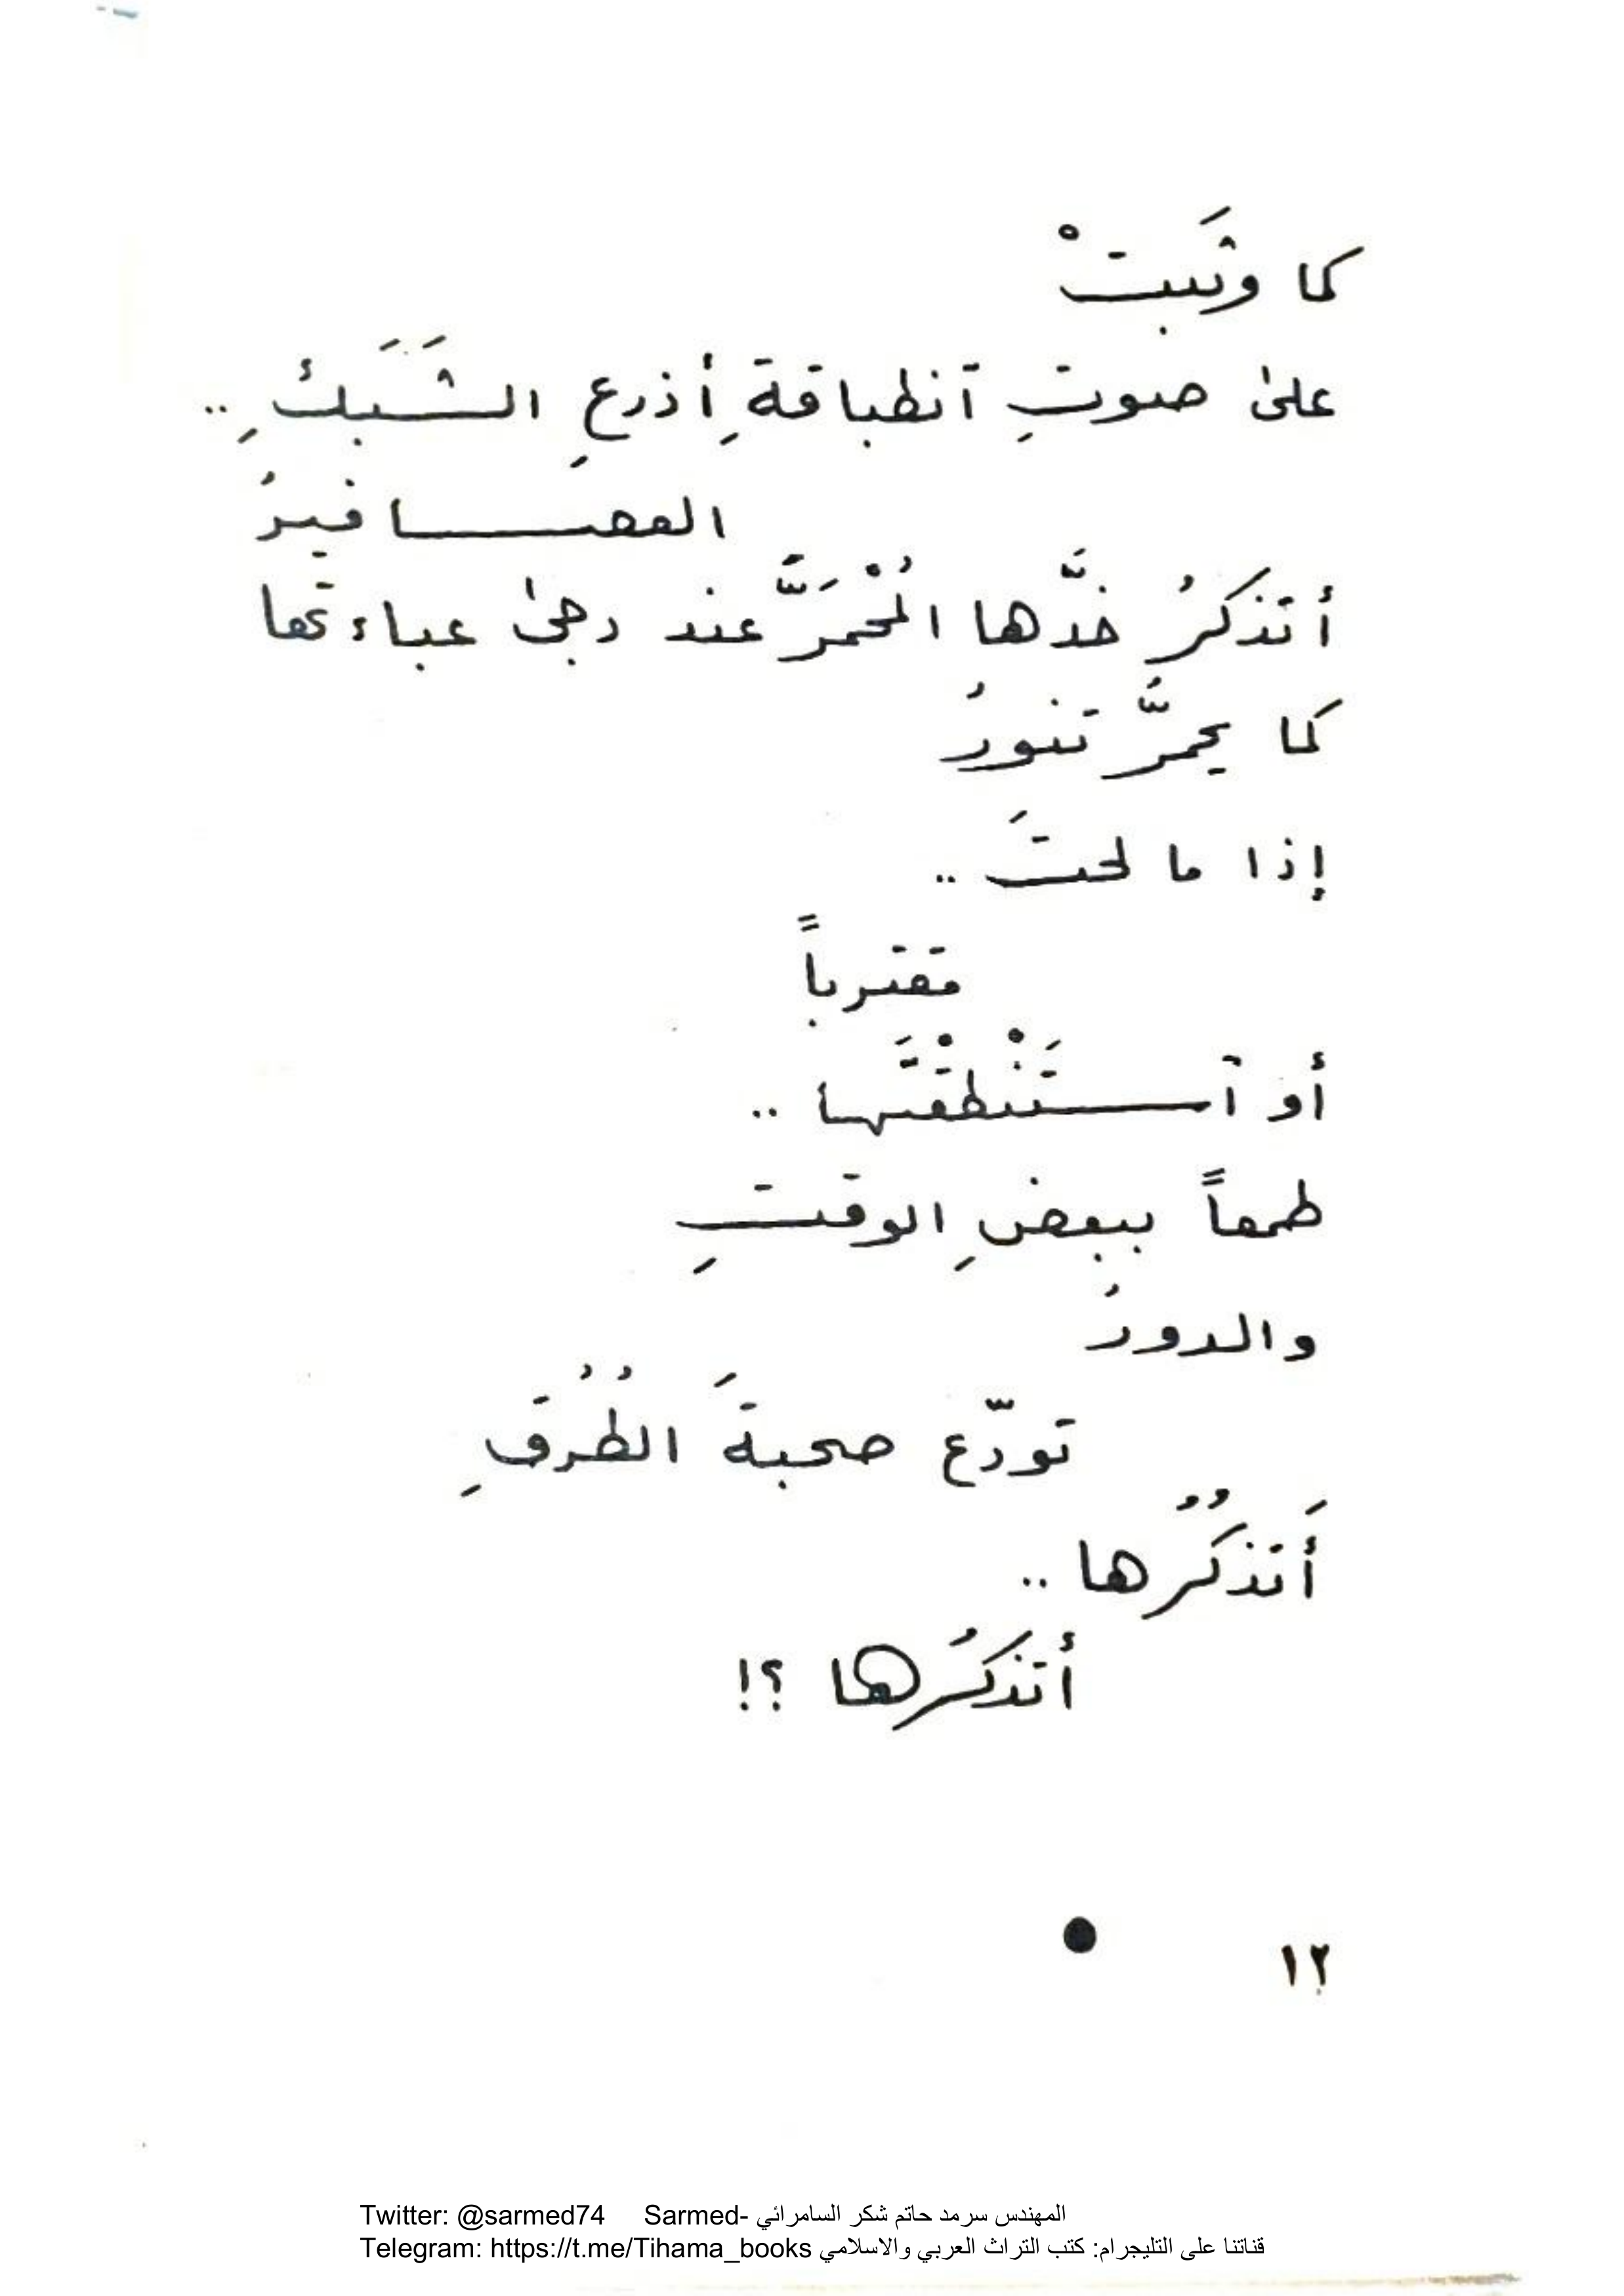 كما وثَبتْ
على صوتِ ٱنطباقةِ أذرعِ الشَبَكِ ..
العصافيرُ
أتذكرُ خدَّها المُحْمَرَّ عند دجى عباءتها
كما يحمرُّ تنورُ
إذا ما لحتَ ..
مقترباً
أو ٱستَنْطقْتَها ..
طمعاً ببعضِ الوقتِ
والدورُ
تودّع صحبةَ الطُرُقِ
أَتذكُرُها ..
أتذكرُها ؟!
١٢
Twitter: @sarmed74 Sarmed- المهندس سرمد حاتم شكر السامرائي
Telegram: https://t.me/Tihama_books قناتنا على التليجرام: كتب التراث العربي والاسلامي